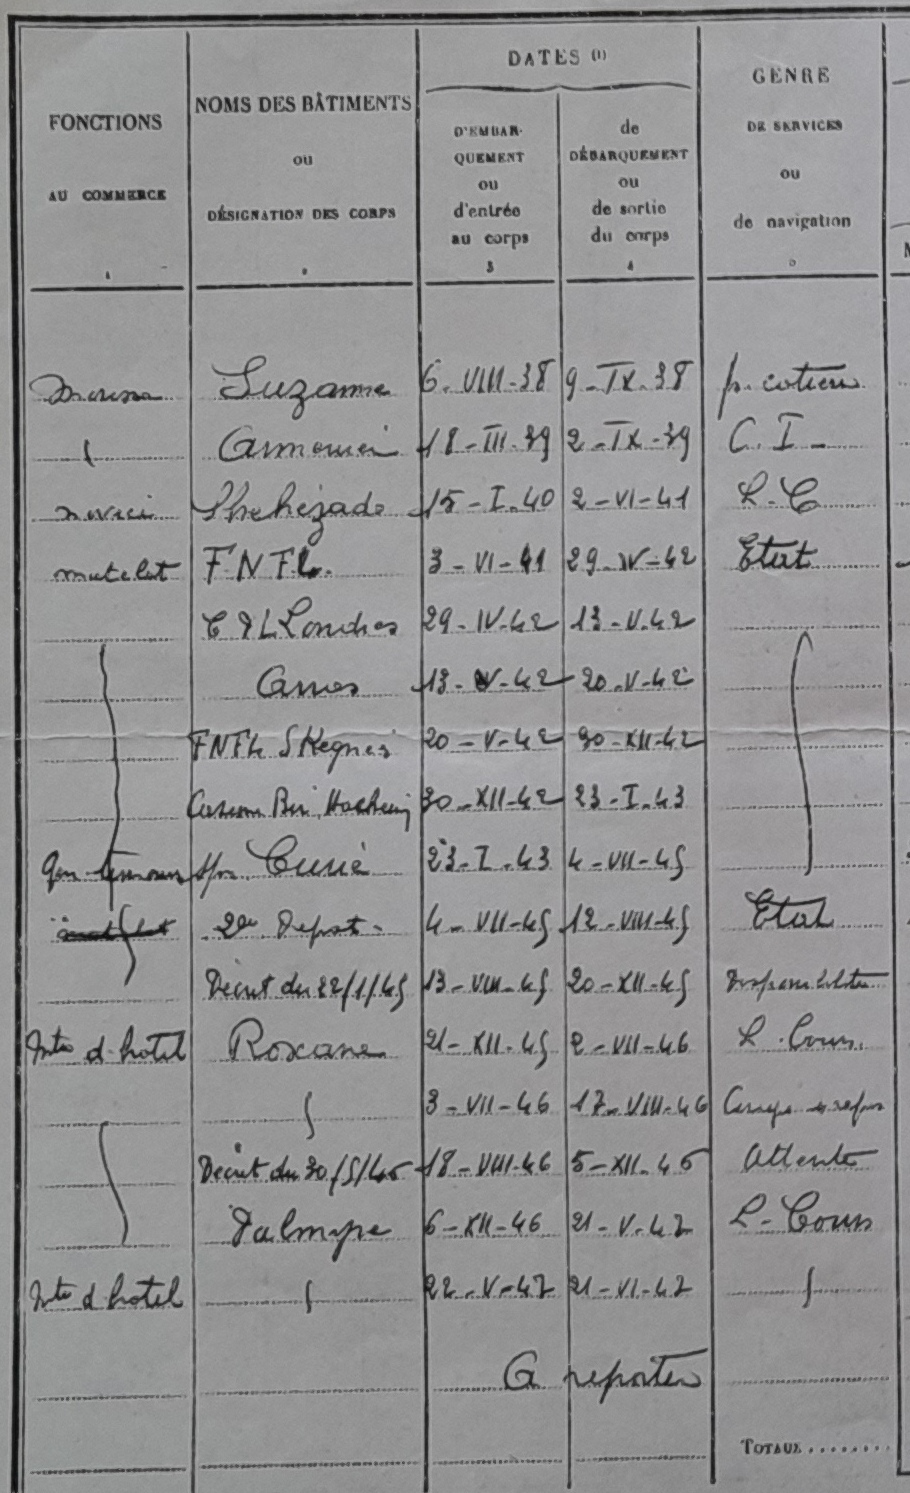 FONCTIONS
AU COMMERCE
1
NOMS DES BÂTIMENTS
ou
DÉSIGNATION DES CORPS
DATES (1)
D'EMBAR-
QUEMENT
ou
d'entrée
au corps
3
de
DÉBARQUEMENT
ou
de sortie
du corps
4
GENRE
DE SERVICES
ou
de navigation
Suzanne 6. VIII-38 9-IX-38 p. cotiere
18-III-39 2-IX-39 C. I-
novice Shehézade 15-I-40 2-VI-41 L-C
matelot FNFL. 3-VI-41 29-IV-42 Etat
Londres 29-IV-42 13-V-42
13-V-42 20-V-42
FNFL Skegnes 20-V-42 30-XII-42
Caserne Bir Hacheim 30-XII-42 23-I-43
Curie 23-I-43 4-VII-45
Depot- 4-VII-45 12-VIII-45 Etat
Décret du 22/1/45 13-VIII-45 20-XII-45
d'hotel Roxane 21-XII-45 2-VII-46 L. Cours.
3-VII-46 17-VIII-46
Décret du 30/5/46 18-VIII-46 5-XII-46 Attente
Palmyre 6-XII-46 21-V-47 L-Cours
d'hotel 22-V-47 21-VI-47
A reporter
TOTAUX ........